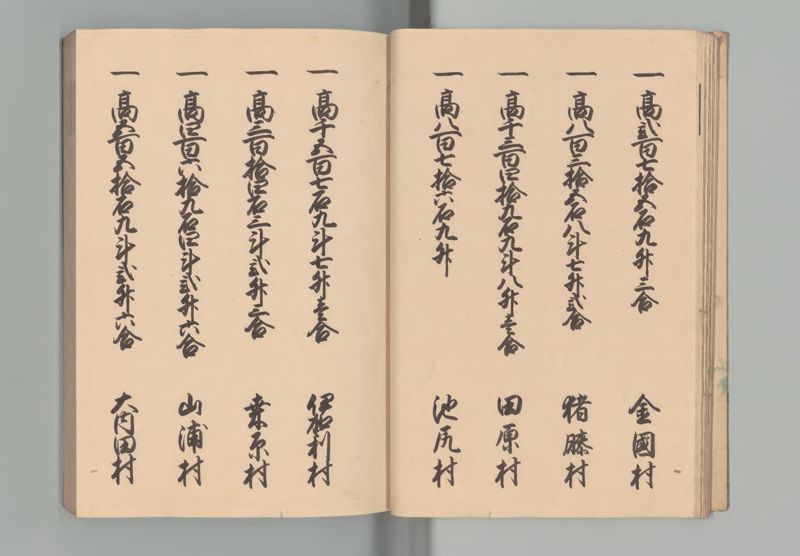 一 高弐百七拾五石九升三合 金國村
一 高八百三拾五石八斗七升弐合 猪膝村
一 高千三百四拾九石九斗八升壱合 田原村
一 高八百七拾六石九升 池尻村
一 高千五百七石九斗七升壱合 伊加利村
一 高三百拾四石三斗弐升三合 桑原村
一 高四百六拾九石四斗弐升六合 山浦村
一 高五百五拾石九斗弐升六合 大内田村